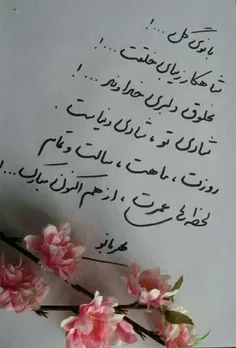 بانوی گل ...!
شاهکار زیبای خلقت ...!
مخلوق دلبری خداوند ...!
شادی تو ، شادی دنیاست .
روزت ، ماهت ، سالت و تمام
لحظه‌های عمرت ، از هم اکنون مبارک ...!
مهربانو